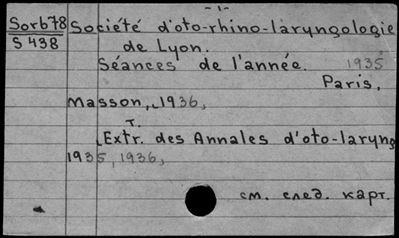 - 1 -
Sorb78 Société d'oto-rhino-laryngologie
S 438
de Lyon.
Séances de l'année. 1935
Paris,
Masson, 1936,
т.
Extr. des Annales d'oto-laryng
1935, 1936,
см. след. карт.